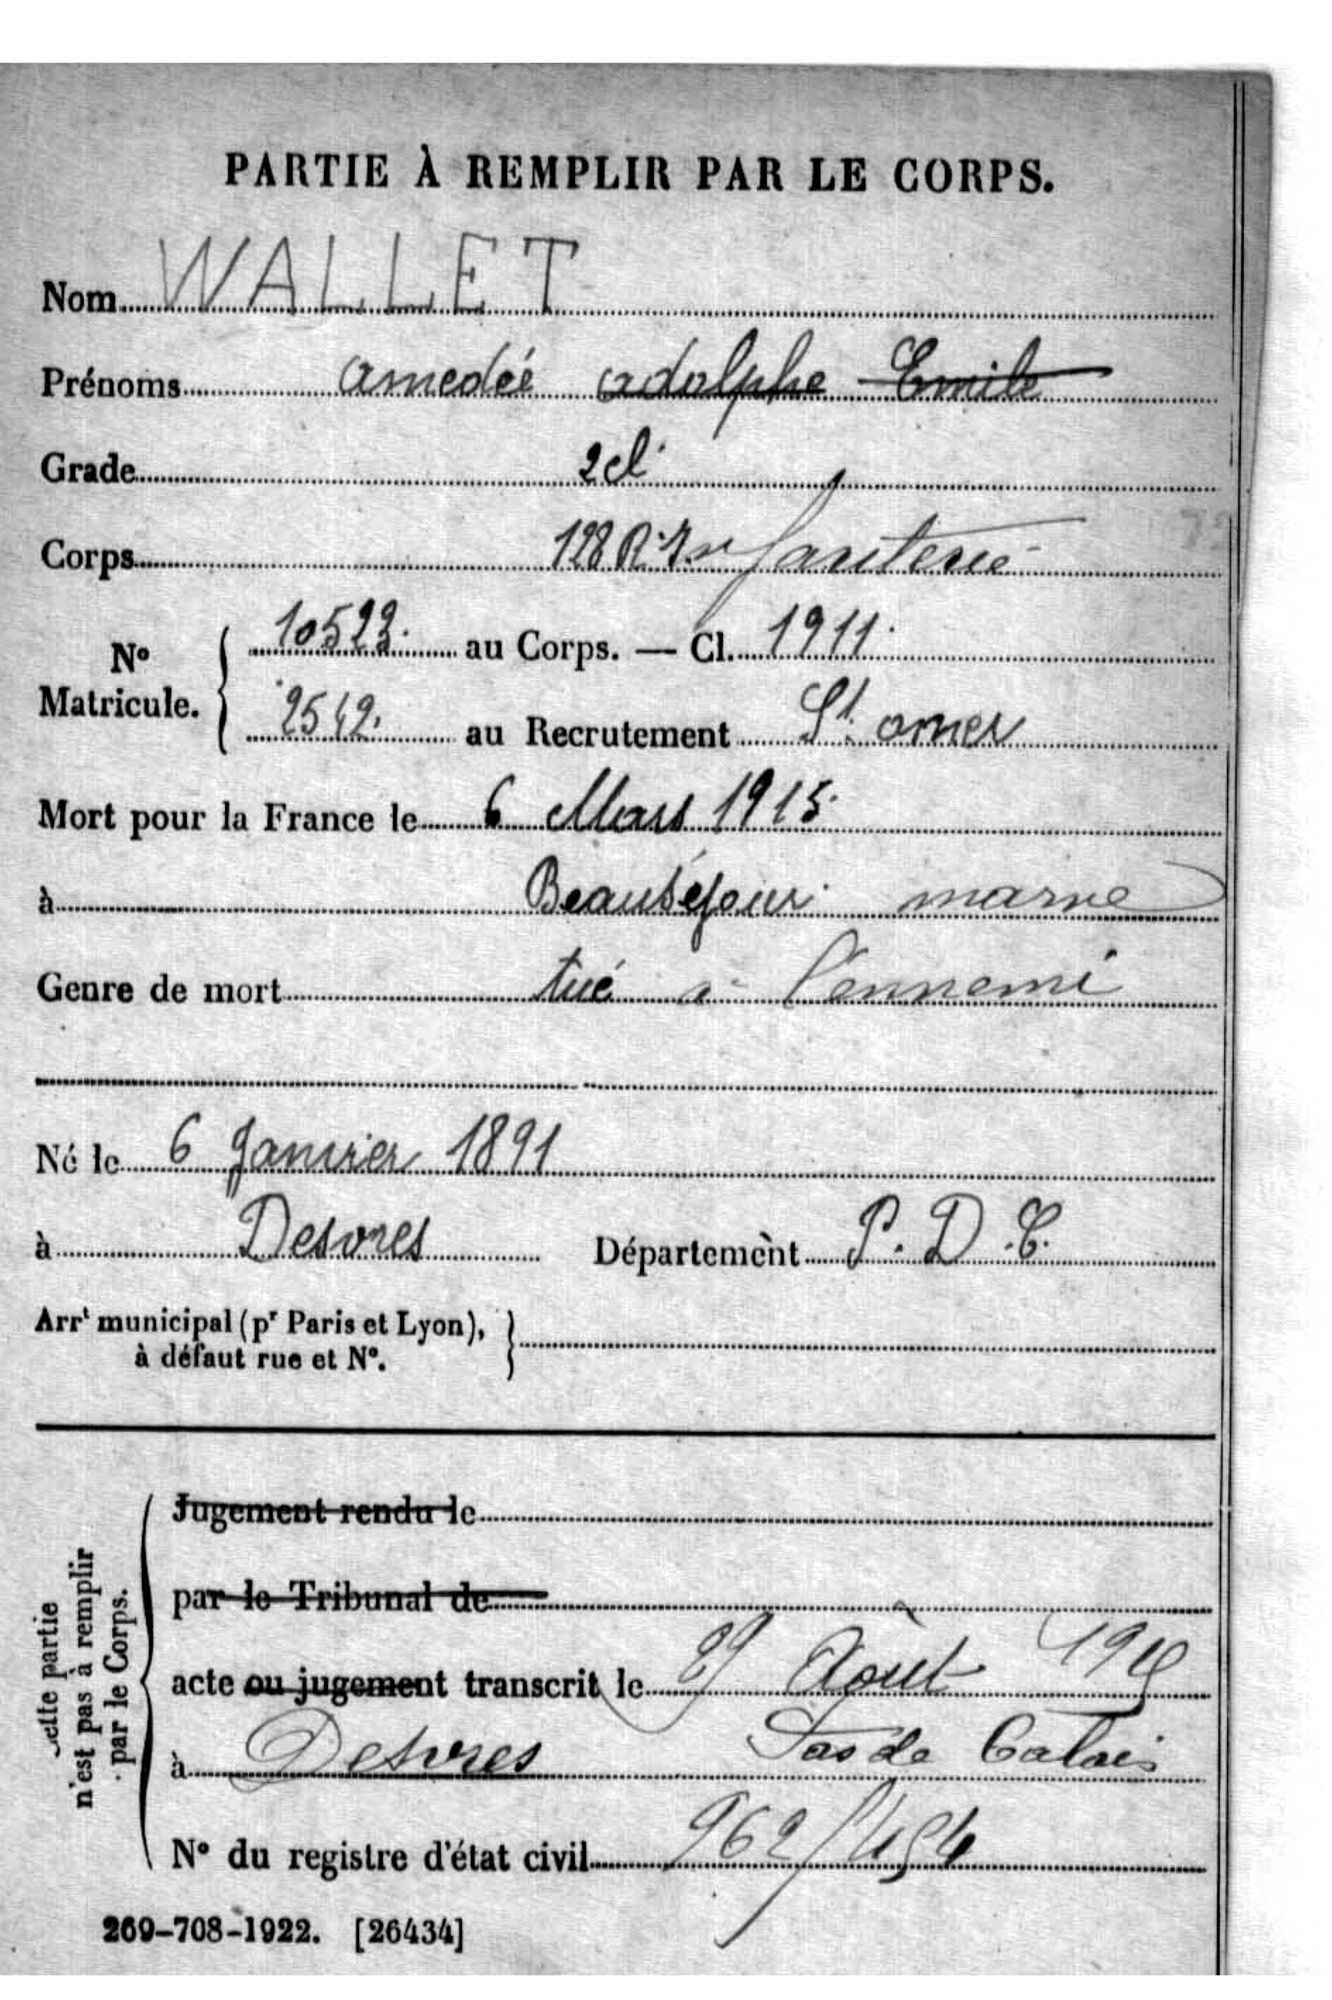 PARTIE À REMPLIR PAR LE CORPS.
Nom WALLET
Prénoms Amedéé Adolphe Emile
Grade 2 cl.
Corps 128 R. Infanterie
N° Matricule. 10523. au Corps. — Cl. 1911.
2512. au Recrutement St. omer
Mort pour la France le 6 Mars 1915.
à Beauséjour. marne
Genre de mort tué à l'ennemi
Né le 6 Janvier 1891
à Desvres Département P. D. C.
Arrt municipal (pr Paris et Lyon),
à défaut rue et N°.
Cette partie
n'est pas à remplir
par le Corps.
Jugement rendu le
par le Tribunal de
acte ou jugement transcrit le Août
à Desvres Pas de Calais
N° du registre d'état civil 962/
269-708-1922. [26434]